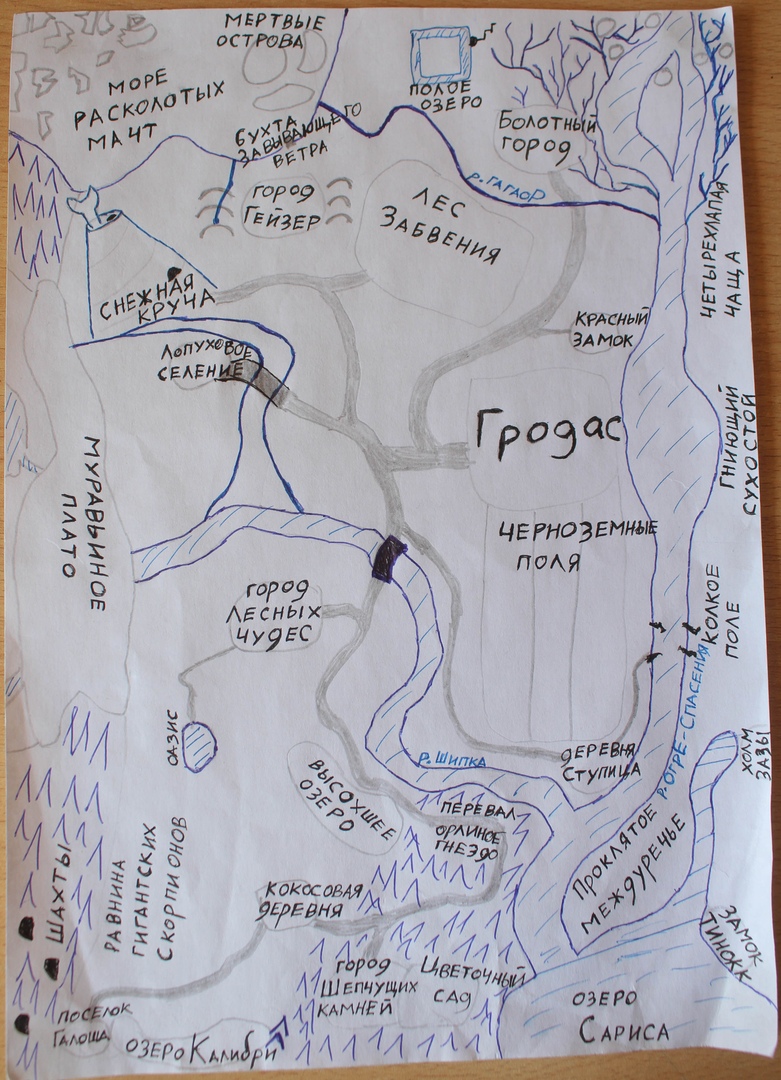 МЕРТВЫЕ
ОСТРОВА
МОРЕ
РАСКОЛОТЫХ
МАЧТ
ПОЛОЕ
ОЗЕРО
БОЛОТНЫЙ
ГОРОД
БУХТА
ЗАВЫВАЮЩЕГО
ВЕТРА
р. ГАГАОР
ГОРОД
ГЕЙЗЕР
ЛЕС
ЗАБВЕНИЯ
ЧЕТЫРЕХЛАПАЯ
ЧАЩА
СНЕЖНАЯ
КРУЧА
КРАСНЫЙ
ЗАМОК
ЛОПУХОВОЕ
СЕЛЕНИЕ
Гродас
ГНИЮЩИЙ
СУХОСТОЙ
МУРАВЬИНОЕ
ПЛАТО
ЧЕРНОЗЕМНЫЕ
ПОЛЯ
ГОРОД
ЛЕСНЫХ
ЧУДЕС
КОЛКОЕ
ПОЛЕ
р. ОГРЕ-СПАСЕНИЯ
ОАЗИС
ХОЛМ
ЗАЗЫ
р. ШИПКА
ДЕРЕВНЯ
СТУПИЦА
ВЫСОХШЕЕ
ОЗЕРО
ПЕРЕВАЛ
ОРЛИНОЕ
ГНЕЗДО
ПРОКЛЯТОЕ
МЕЖДУРЕЧЬЕ
ШАХТЫ
РАВНИНА
ГИГАНТСКИХ
СКОРПИОНОВ
КОКОСОВАЯ
ДЕРЕВНЯ
ЗАМОК
ТИНОКК
ГОРОД
ШЕПЧУЩИХ
КАМНЕЙ
ЦВЕТОЧНЫЙ
САД
ОЗЕРО
САРИСА
ПОСЕЛОК
ГАЛОША
ОЗЕРО КАЛИБРИ